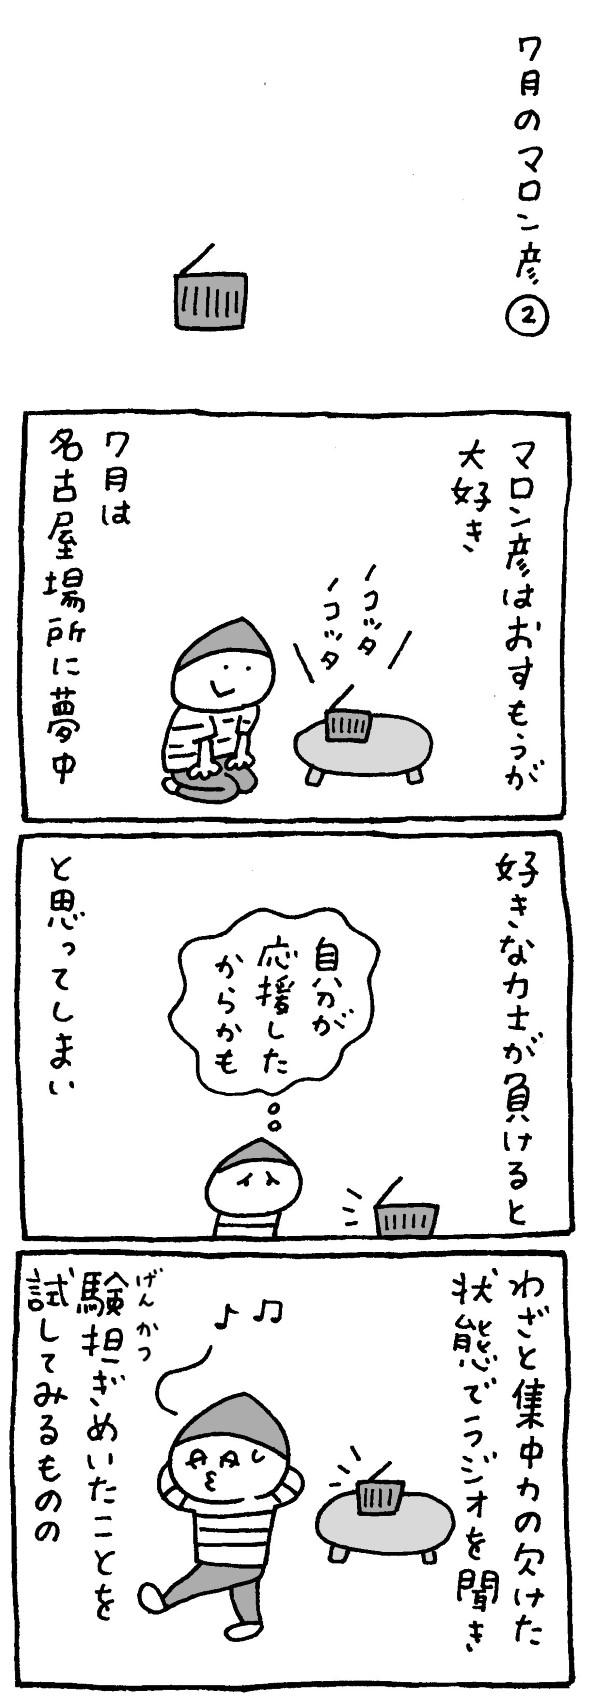 7月のマロン彦②
マロン彦はおすもうが
大好き
ノコッタ
ノコッタ
7月は
名古屋場所に夢中
好きな力士が負けると
自分が
応援した
からかも
と思ってしまい
わざと集中力の欠けた
状態でラジオを聞き
げんかつ
験担ぎめいたことを
試してみるものの